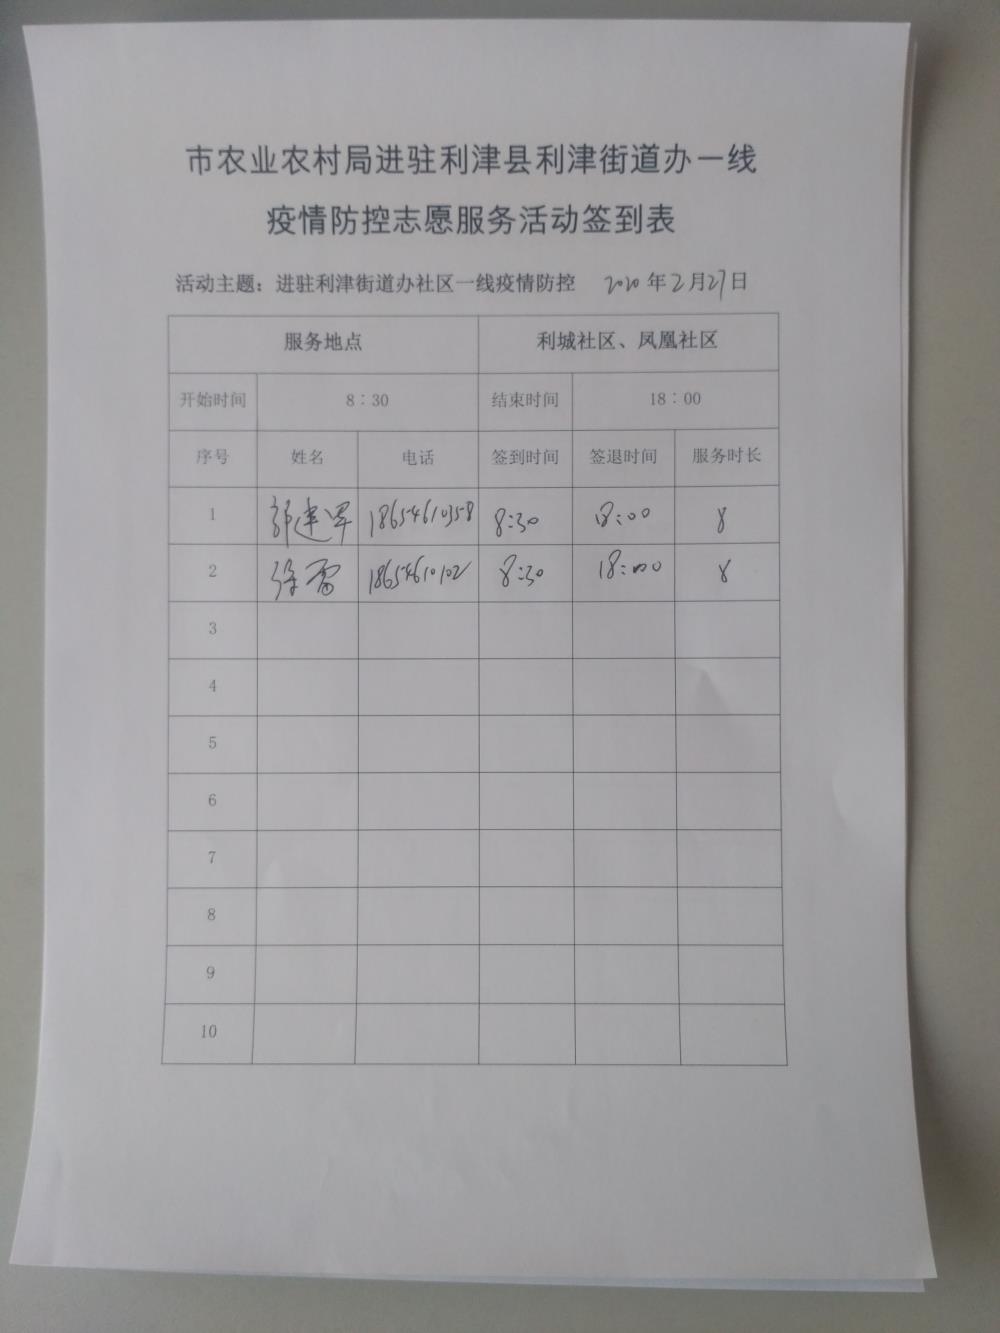 市农业农村局进驻利津县利津街道办一线
疫情防控志愿服务活动签到表
活动主题：进驻利津街道办社区一线疫情防控 2020年2月27日
服务地点 利城社区、凤凰社区
开始时间 8：30 结束时间 18：00
序号 姓名 电话 签到时间 签退时间 服务时长
1 郭建军 18654610358 8:30 18:00 8
2 徐雷 18654610102 8:30 18:00 8
3
4
5
6
7
8
9
10